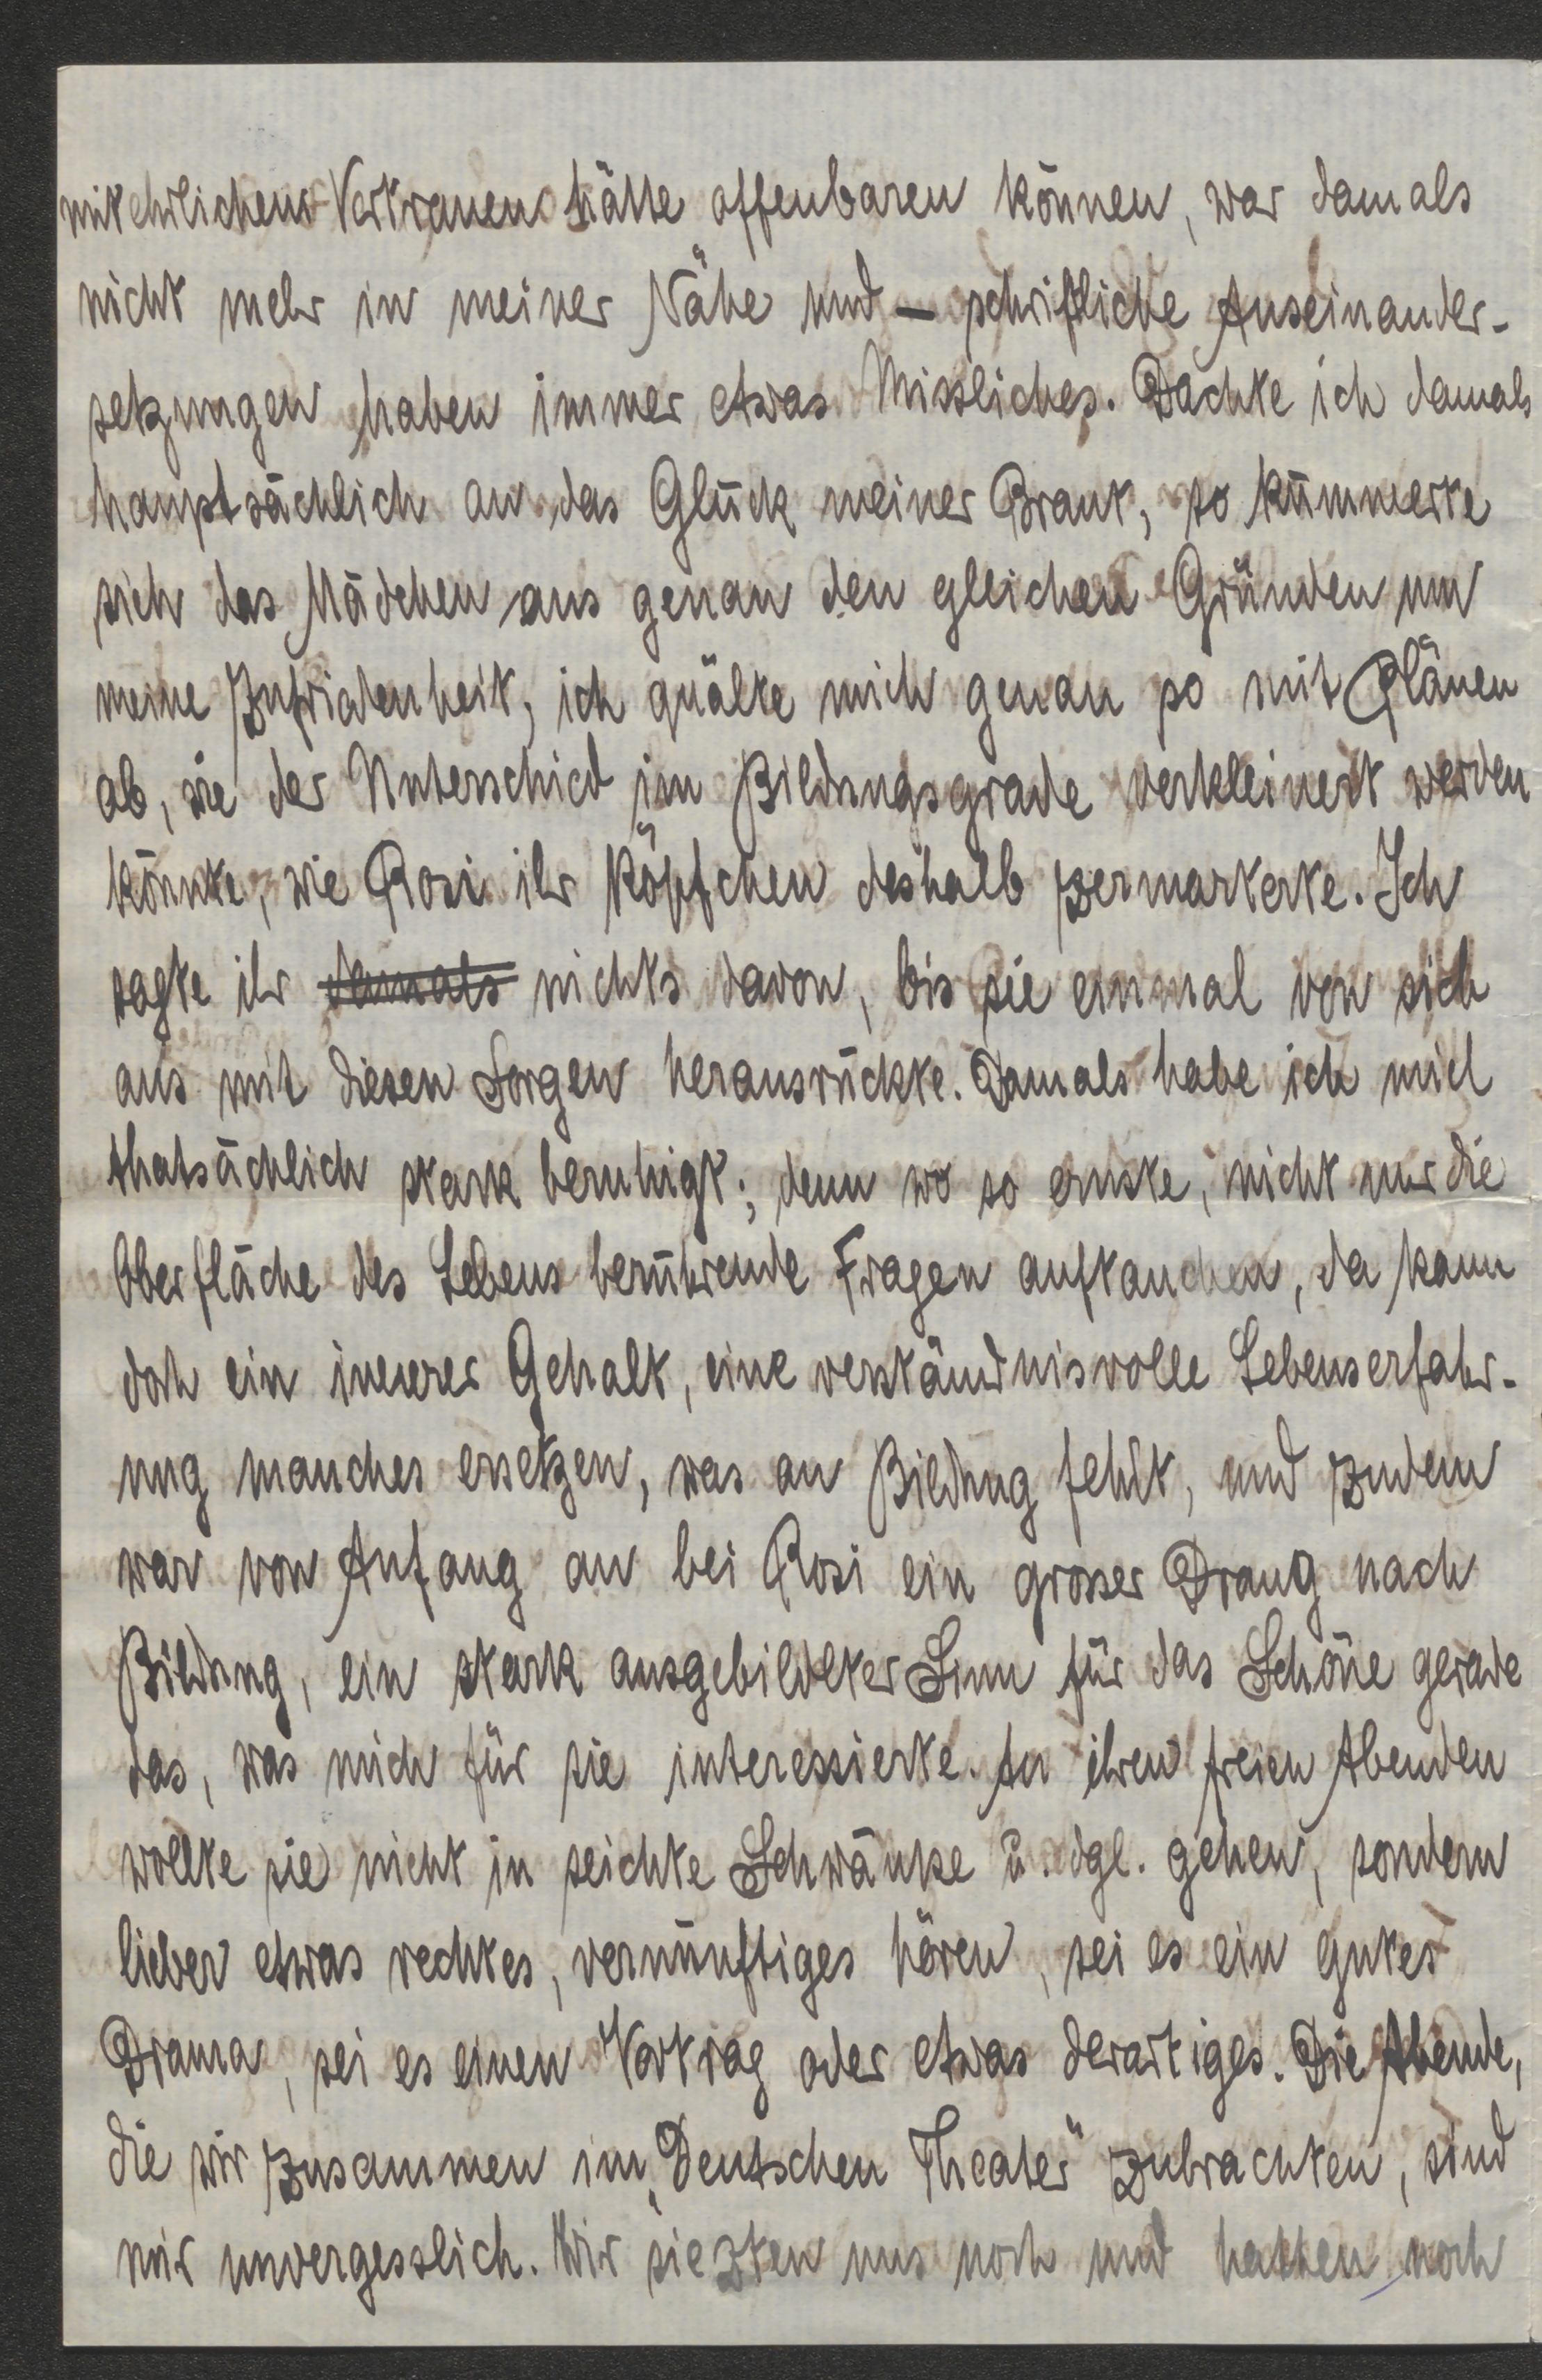 mit ehrlichem Vertrauen hätte offenbaren können, war damals
nicht mehr in meiner Nähe und — schriftliche Auseinander-
setzungen haben immer etwas Missliches. Dachte ich damals
hauptsächlich an das Glück meiner Braut, so kümmerte
sich das Mädchen aus genau den gleichen Gründen um
meine Zufridenheit, ich quälte mich genau so mit Plänen
ab, wie der Unterschied im Bildungsgrade verkleinert werden
könnte, wie Rosi ihr Köpfchen deshalb zermarterte. Ich
sagte ihr damals nichts davon, bis sie einmal von sich
aus mit diesen Sorgen herausrückte. Damals habe ich mich
thatsächlich stark beruhigt; denn wo so ernste, nicht nur die
Oberfläche des Lebens berührende Fragen auftauchen, da kann
doch ein innerer Gehalt, eine verständnisvolle Lebenserfahr-
ung manches ersetzen, was an Bildung fehlt, und zudem
war von Anfang an bei Rosi ein grosser Drang nach
Bildung, ein stark ausgebildeter Sinn für das Schöne gerade
das, was mich für sie interessierte. An ihren freien Abenden
wollte sie nicht in seichte Schwänke u. dgl. gehen, sondern
lieber etwas rechtes, vernünftiges hören, sei es ein gutes
Drama, sei es einen Vortrag oder etwas derartiges. Die Abende,
die wir zusammen im „Deutschen Theater" zubrachten, sind
mir unvergesslich. Wir siezten uns noch und hatten noch